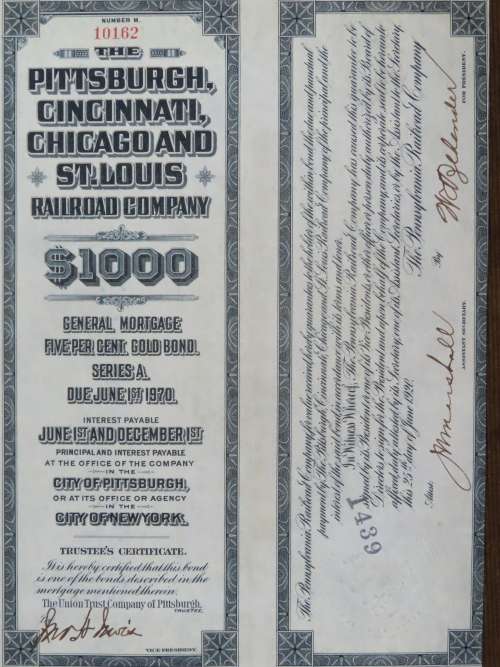 NUMBER M.
10162
THE
PITTSBURGH,
CINCINNATI,
CHICAGO AND
ST. LOUIS
RAILROAD COMPANY
$1000
GENERAL MORTGAGE
FIVE PER CENT. GOLD BOND.
SERIES A.
DUE JUNE 1ST 1970.
INTEREST PAYABLE
JUNE 1ST AND DECEMBER 1ST
PRINCIPAL AND INTEREST PAYABLE
AT THE OFFICE OF THE COMPANY
IN THE
CITY OF PITTSBURGH,
OR AT ITS OFFICE OR AGENCY
IN THE
CITY OF NEW YORK.
TRUSTEE'S CERTIFICATE.
It is hereby certified that this bond
is one of the bonds described in the
mortgage mentioned therein.
The Union Trust Company of Pittsburgh,
TRUSTEE,
VICE PRESIDENT.
The Pennsylvania Railroad Company, for value received, hereby guarantees to the holder of the within bond that the interest and principal
payable by The Pittsburgh, Cincinnati, Chicago and St. Louis Railroad Company of the principal and the
interest of the said bond in accordance with its terms and tenor.
In Witness Whereof, The Pennsylvania Railroad Company has caused this guarantee to be
signed by its President or one of its Vice Presidents, or other officer or person duly authorized by its Board of
Directors to sign for the President and upon behalf of the Company and its corporate seal to be hereunto
affixed, duly attested by its Secretary, one of its Assistant Secretaries, or by the Assistant to the Secretary,
this 25th day of June 1920.
The Pennsylvania Railroad Company
Attest:
J W Marshall
ASSISTANT SECRETARY.
By
FOR PRESIDENT.
1439